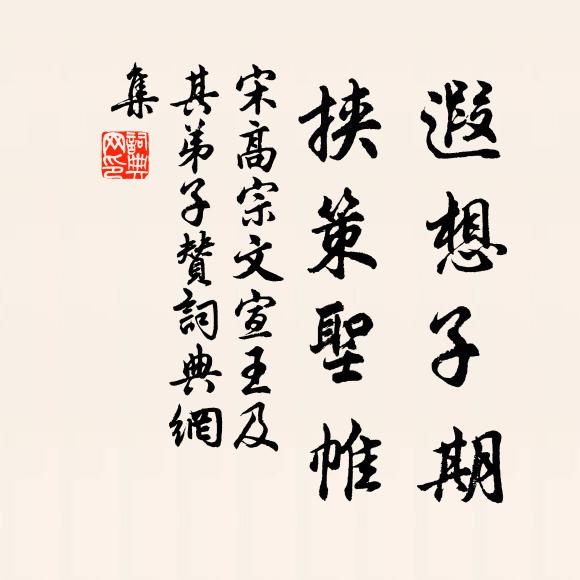 遐想子期
挟策聖帷
宋高宗文宣王及
其弟子贊詞典網
集
詞典網印